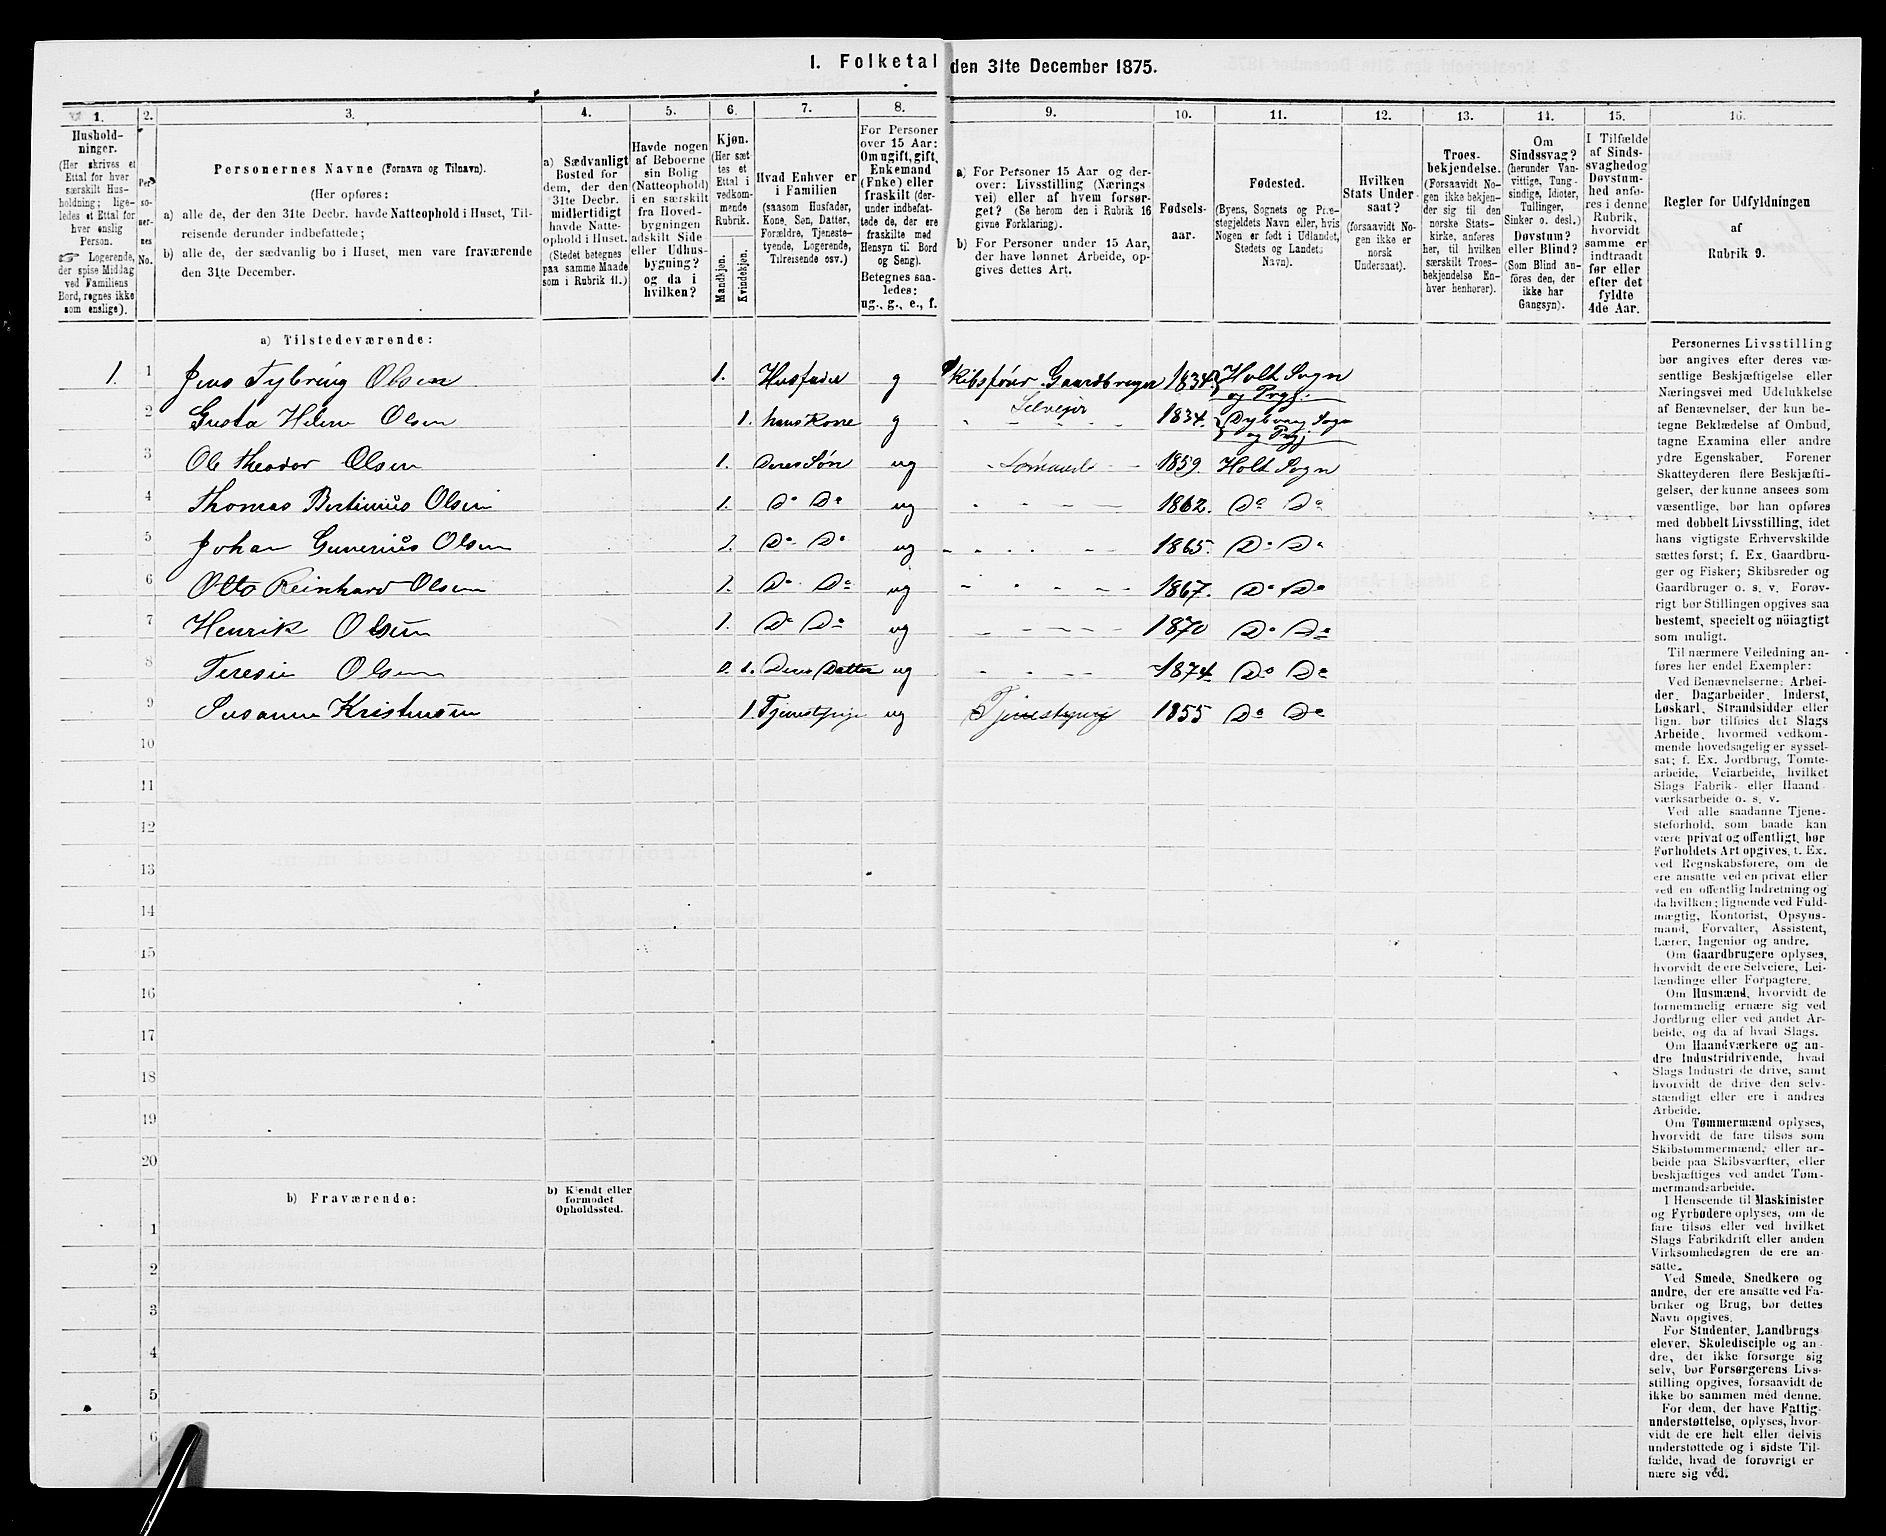 I. Folketal den 31te December 1875.
1. 2. 3. 4. 5. 6. 7. 8. 9. 10. 11. 12. 13. 14. 15. 16.
Hushold-
ninger.
(Her skrives et
Ettal for hver
særskilt Hus-
holdning; lige-
ledes et Ettal for
hver enslig
Person.
☞ Logerende,
der spise Middag
ved Familiens
Bord, regnes ikke
som enslige).
Per-
so-
ner-
nes
No.
Personernes Navne (Fornavn og Tilnavn).
(Her opføres:
a) alle de, der den 31te Decbr. havde Natteophold i Huset, Til-
reisende derunder indbefattede;
b) alle de, der sædvanlig bo i Huset, men vare fraværende
den 31te December.
a) Sædvanligt
Bosted for
dem, der den
31te Decbr.
midlertidigt
havde Natte-
ophold i Huset.
(Stedet betegnes
paa samme Maade
som i Rubrik 11.)
Havde nogen
af Beboerne
sin Bolig
(Natteophold)
i en særskilt
fra Hoved-
bygningen
adskilt Side
eller Udhus-
bygning?
og da i
hvilken?
Kjøn.
(Her sæt-
tes et
Ettal i
vedkom-
mende
Rubrik.
Mandkjøn.
Kvindekjøn.
Hvad Enhver er
i Familien
(saasom Husfader,
Kone, Søn, Datter,
Forældre, Tjeneste-
tyende, Logerende,
Tilreisende osv.)
For Personer
over 15 Aar:
Om ugift, gift,
Enkemand
(Enke) eller
fraskilt (der-
under indbefat-
tede de, der ere
fraskilte med
Hensyn til Bord
og Seng).
Betegnes saa-
ledes:
ug., g., e., f.
a) For Personer 15 Aar og der-
over: Livsstilling (Nærings
vei) eller af hvem forsør-
get? (Se herom den i Rubrik 16
givne Forklaring).
b) For Personer under 15 Aar,
der have lønnet Arbeide, op-
gives dettes Art.
Fødsels-
aar.
Fødested.
(Byens, Sognets og Præ-
stegjeldets Navn eller, hvis
Nogen er født i Udlandet,
Stedets og Landets
Navn).
Hvilken
Stats Under-
saat?
(forsaavidt No-
gen ikke er
norsk
Undersaat).
Troes-
bekjendelse.
(Forsaavidt No-
gen ikke bekjen-
der sig til den
norske Stats-
kirke, anføres
her, til hvilken
særskilt Troes-
bekjendelse En-
hver henhører).
Om
Sindssvag?
(herunder Van-
vittige, Tung-
sindige, Idioter,
Tullinger,
Sinker o. desl.)
Døvstum?
eller Blind?
(Som Blind an-
føres den, der
ikke har
Gangsyn).
I Tilfælde
af Sinds-
svaghed og
Døvstum-
hed anfø-
res i denne
Rubrik,
hvorvidt
samme er
indtraadt
før eller
efter det
fyldte
4de Aar.
Regler for Udfyldningen
af
Rubrik 9.
a) Tilstedeværende:
1. 1 Jens Tybring Olsen 1. Husfader g Skibsfører. Gaardbruger Selveier 1834. Holt Sogn og Prgj.
2 Gusta Helene Olsen 1. hans Kone g 1834. Dybvaag Sogn og Prgj
3 Ole Theodor Olsen 1. Deres Søn ug Sømand 1859 Holt Sogn
4 Thomas Bertinius Olsen 1. Do Do ug 1862. Do Do
5 Johan Gunerius Olsen 1. Do Do ug 1865. Do Do
6 Otto Reinhard Olsen 1. Do Do ug 1867. Do Do
7 Henrik Olsen 1. Do Do ug 1870 Do Do
8 Teresie Olsen 0. 1. Deres Datter ug 1874 Do Do
9 Susanne Kristensen 1. Tjenestpige ug Tjenestepige 1855 Do Do
10
11
12
13
14
15
16
17
18
19
20
b) Fraværende:
b) Kjendt eller
formodet
Opholdssted.
1
2
3
4
5
6
Personernes Livsstilling
bør angives efter deres væ-
sentlige Beskjæftigelse eller
Næringsvei med Udelukkelse
af Benævnelser, der kun be-
tegne Beklædelse af Ombud,
tagne Examina eller andre
ydre Egenskaber. Forener
Skatteyderen flere Beskjæfti-
gelser, der kunne ansees som
væsentlige, bør han opføres
med dobbelt Livsstilling, idet
hans vigtigste Erhvervskilde
sættes først; f. Ex. Gaardbru-
ger og Fisker; Skibsreder og
Gaardbruger o. s. v. Forøv-
rigt bør Stillingen opgives saa
bestemt, specielt og nöiagtigt
som muligt.
Til nærmere Veiledning an-
føres her endel Exempler:
Ved Benævnelserne: Arbei-
der, Dagarbeider, Inderst,
Løskarl, Strandsidder eller
lign. bør tilføies det Slags
Arbeide, hvormed vedkom-
mende hovedsagelig er syssel-
sat; f. Ex. Jordbrug, Tømte-
arbeide, Veiarbeide, hvilket
Slags Fabrik- eller Haand
værksarbeide o. s. v.
Ved alle saadanne Tjene-
steforhold, som baade kan
være privat og offentligt, bør
Forholdets Art opgives, t. Ex.
ved Regnskabsførere, om de
ere ansatte ved en privat eller
ved en offentlig Indretning og
da hvilken; lignende ved Fuld-
mægtig, Kontorist, Opsyns-
mand, Forvalter, Assistent,
Lærer, Ingeniør og andre.
Om Gaardbrugere oplyses,
hvorvidt de ere Selveiere, Lei-
lændinge eller Forpagtere.
Om Husmænd, hvorvidt de
fornemmelig ernære sig ved
Jordbrug eller ved andet Ar-
beide, og da af hvad Slags.
Om Haandværkere og an-
dre Industridrivende, hvad
Slags Industri de drive, samt
hvorvidt de drive den selv-
stændigt eller ere i andres
Arbeide.
Om Tømmermænd oplyses,
hvorvidt de fare tilsøs som
Skibstømmermænd, eller ar-
beide paa Skibsværfter, eller
beskjæftiges ved andet Tøm-
mermandsarbeide.
I Henseende til Maskinister
og Fyrbødere oplyses, om de
fare tilsøs eller ved hvilket
Slags Fabrikdrift eller anden
Virksomhedsgren de ere an-
satte.
Ved Smede, Snedkere og
andre, der ere ansatte ved Fa-
briker og Brug, bør dettes
Navn opgives.
For Studenter, Landbrugs
elever, Skoledisciple og an-
dre, der ikke forsørge sig
selv, bør Forsørgerens Livs-
stilling opgives, forsaavidt de
ikke bo sammen med denne.
For dem, der have Fattig-
understøttelse, oplyses, hvor-
vidt de ere helt eller delvis
understøttede og i sidste Til-
fælde, hvad de forøvrigt er
nære sig ved.